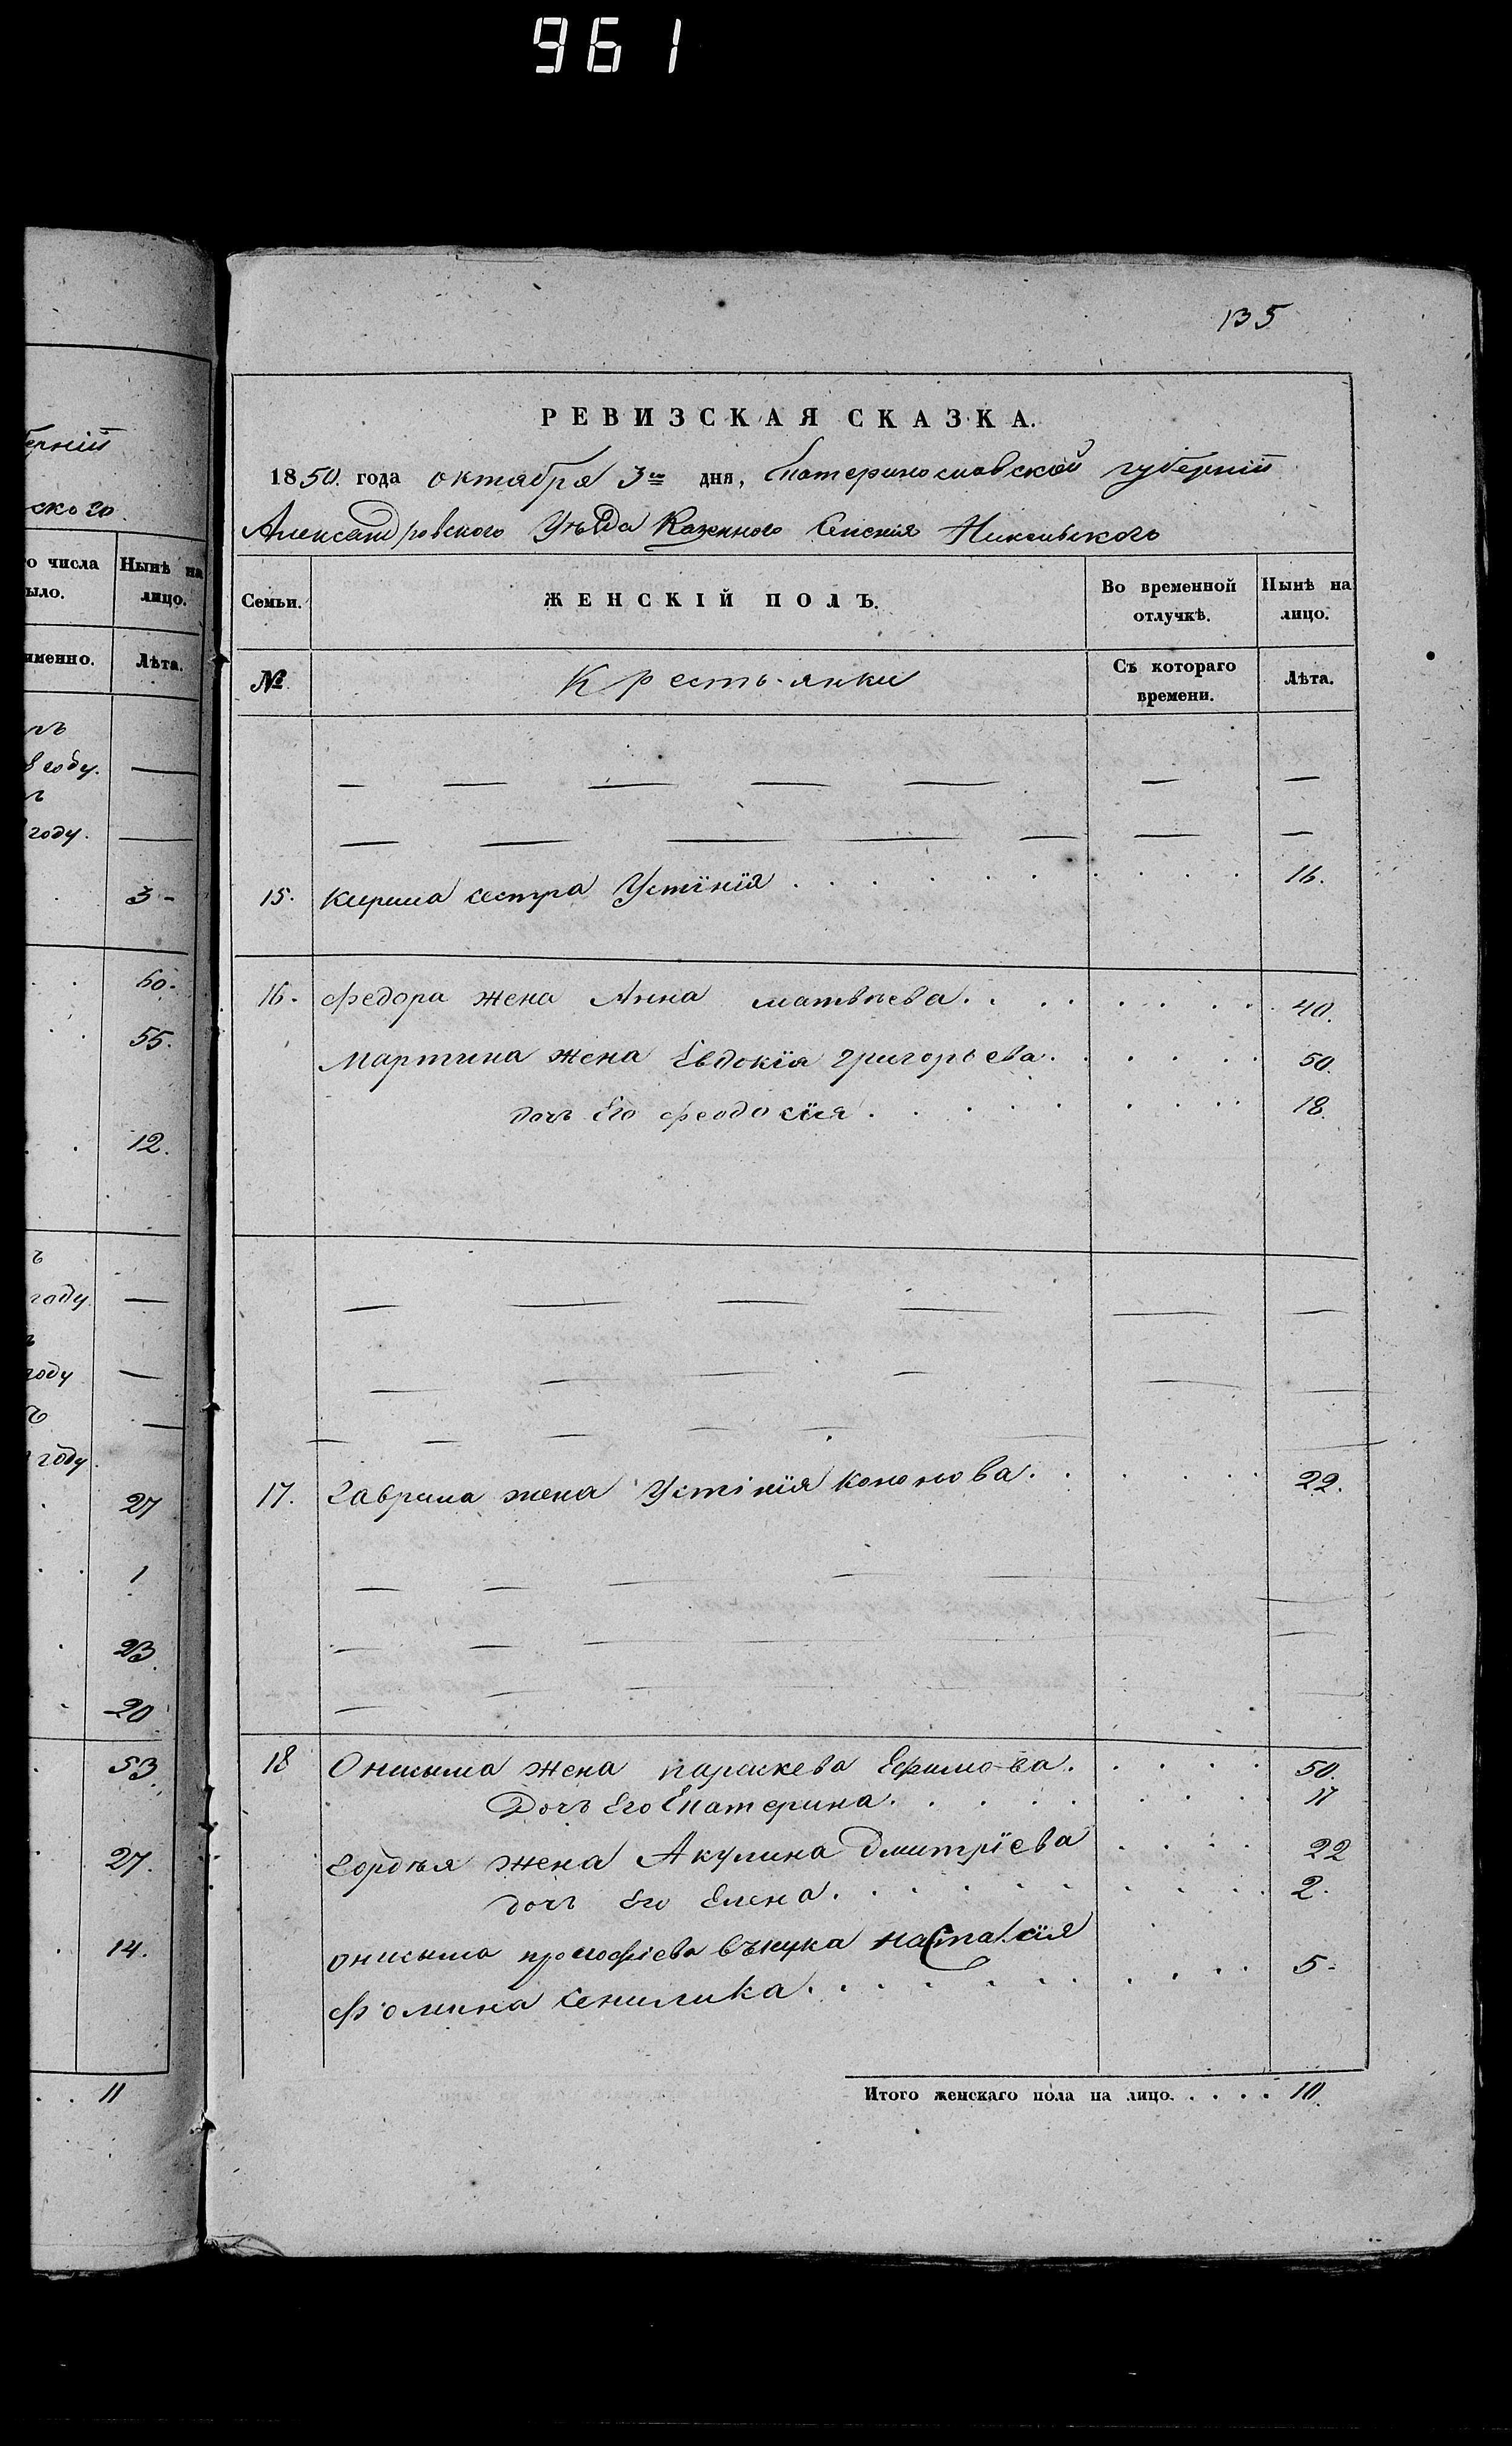 961
135
РЕВИЗСКАЯ СКАЗКА.
1850. года октября 3го дня, Екатеринославской губерніи
Александровского Уѣзда Казенного Сел​енія Никольского
Семьи.
ЖЕНСКІЙ ПОЛЪ.
Во временной отлучкѣ.
Нынѣ на лицо.
№
Крестьянки
Съ котораго времени.
Лѣта.
15. Кирила сестра Устинїя 16.
16. Федора жена Анна матвѣева. 40.
Мартина жена Евдокїя григорьева. 50.
дочь Его феодосїя. 18.
17. Гаврила жена Устінїя Кононова. 22.
18 Онисыма жена параскева Ефимова. 50.
Дочь Его Екатерина. 17
Гордѣя жена Акулина Дмитрїева 22
дочь Его Елена. 2.
онисыма прокофіева внука настасїя
Фомина 5.
Итого женскаго пола на лицо. 10.
берніи
ского
о числа
ыло.
Нынѣ на
лицо.
именно.
Лѣта.
году.
году.
3
60.
55.
12.
году
году
году.
27
1
23.
20
53.
27.
14.
11